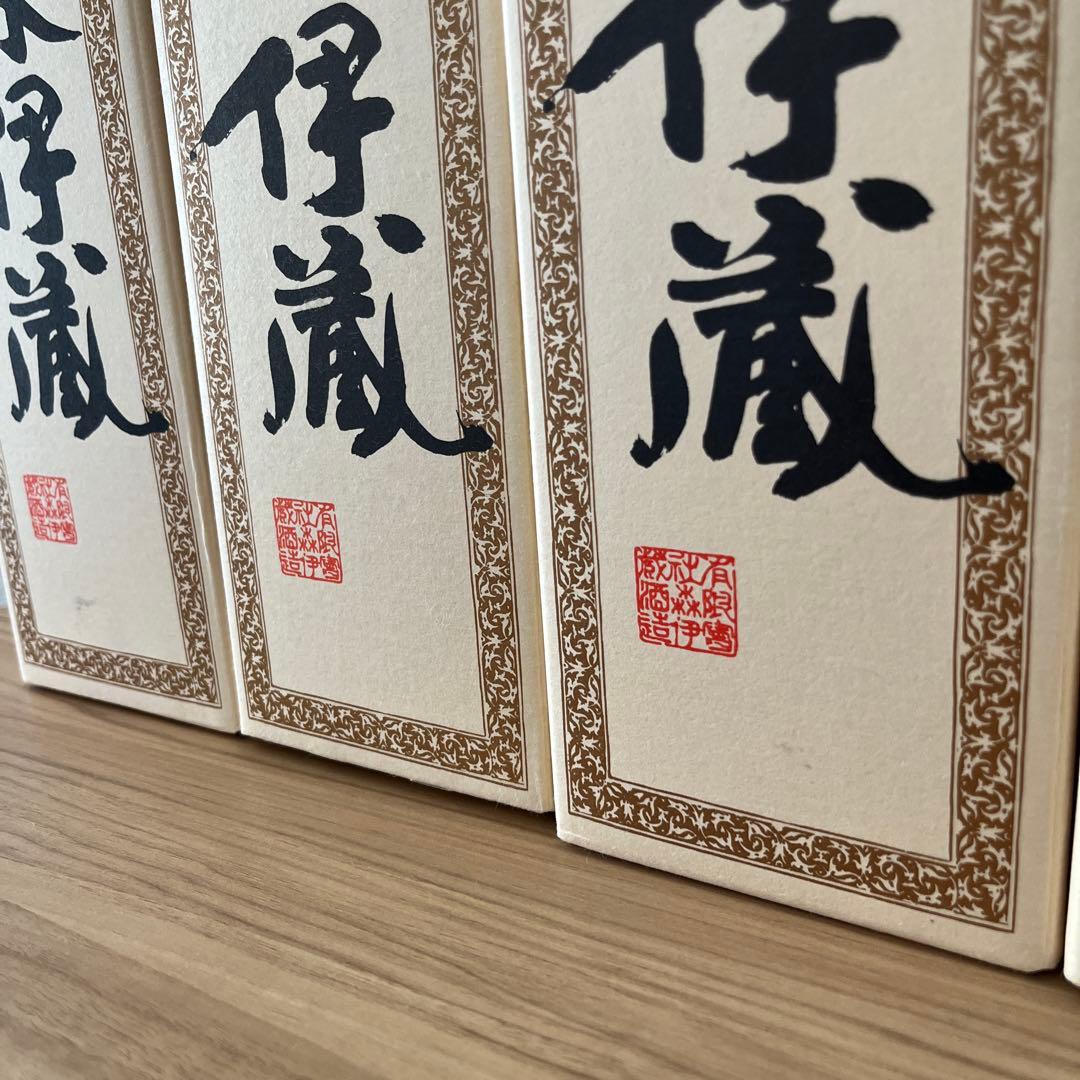 伊蔵
有限會社森伊蔵酒造
伊蔵
有限會社森伊蔵酒造
伊蔵
有限會社森伊蔵酒造